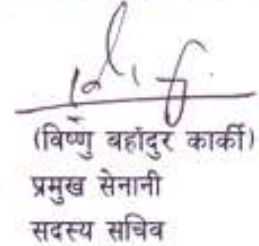 (विष्णु बहादुर कार्की)
प्रमुख सेनानी
सदस्य सचिव